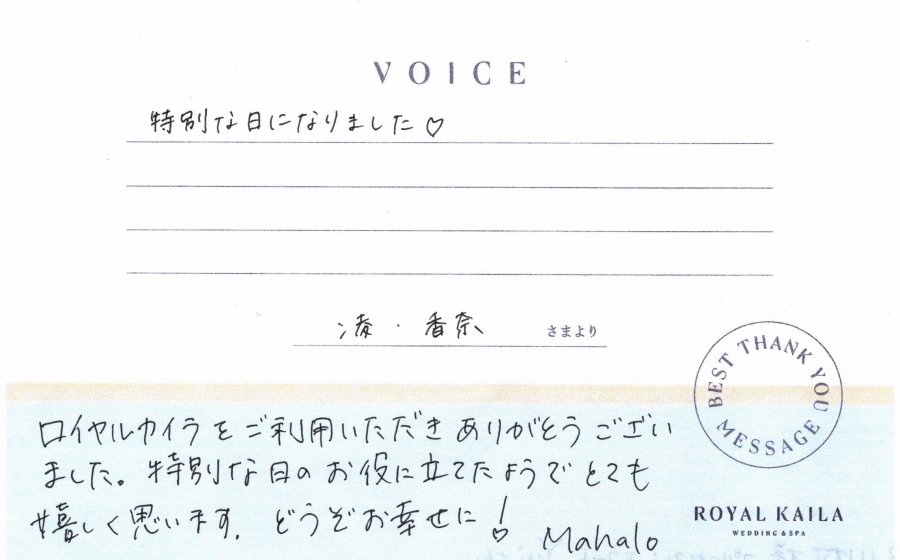 VOICE
特別な日になりました♡
湊・香奈 さまより
BEST THANK YOU MESSAGE
ロイヤルカイラをご利用いただきありがとうござい
ました。特別な日のお役に立てたようでとても
嬉しく思います。どうぞお幸せに!
Mahalo
ROYAL KAILA
WEDDING & SPA